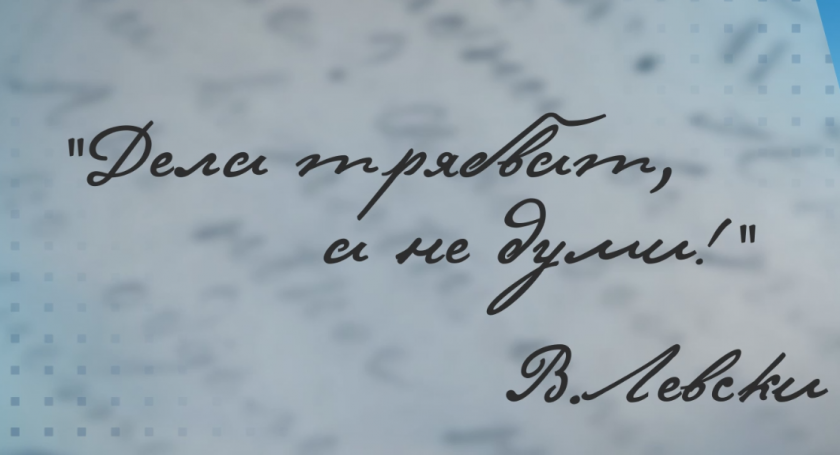 "Дела трябват,
а не думи!"
В.Левски